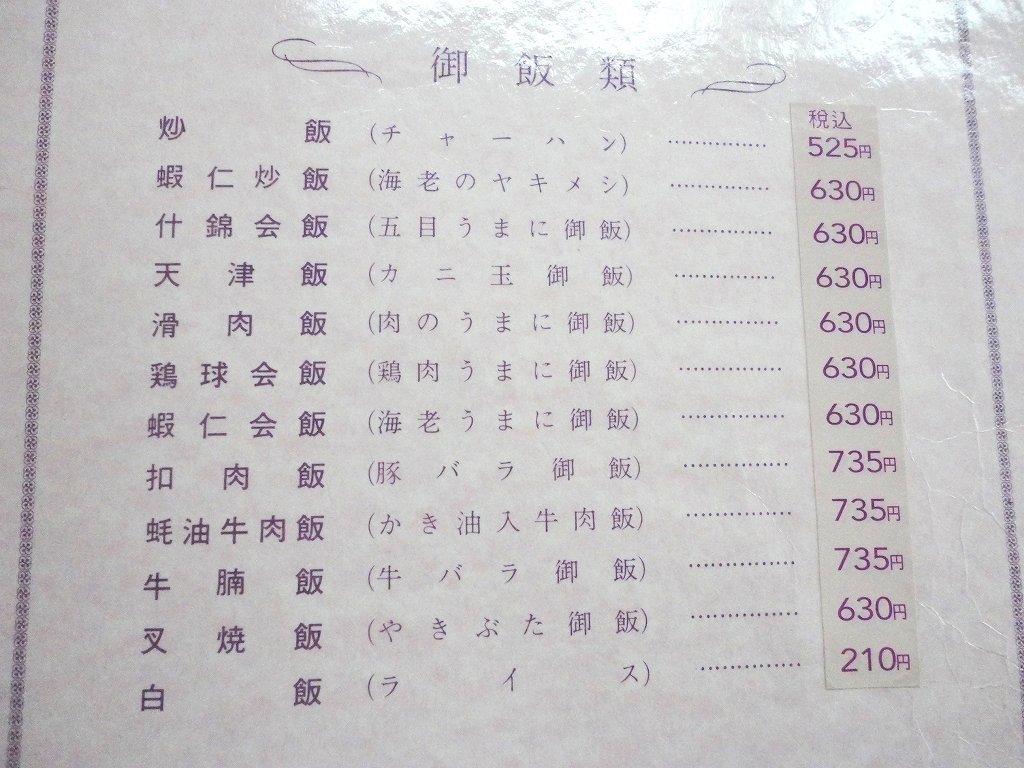 御飯類
税込
炒飯 (チャーハン) …………… 525円
蝦仁炒飯 (海老のヤキメシ) …………… 630円
什錦会飯 (五目うまに御飯) …………… 630円
天津飯 (カニ玉御飯) …………… 630円
滑肉飯 (肉のうまに御飯) …………… 630円
鶏球会飯 (鶏肉うまに御飯) …………… 630円
蝦仁会飯 (海老うまに御飯) …………… 630円
扣肉飯 (豚バラ御飯) …………… 735円
蚝油牛肉飯 (かき油入牛肉飯) …………… 735円
牛腩飯 (牛バラ御飯) …………… 735円
叉焼飯 (やきぶた御飯) …………… 630円
白飯 (ライス) …………… 210円